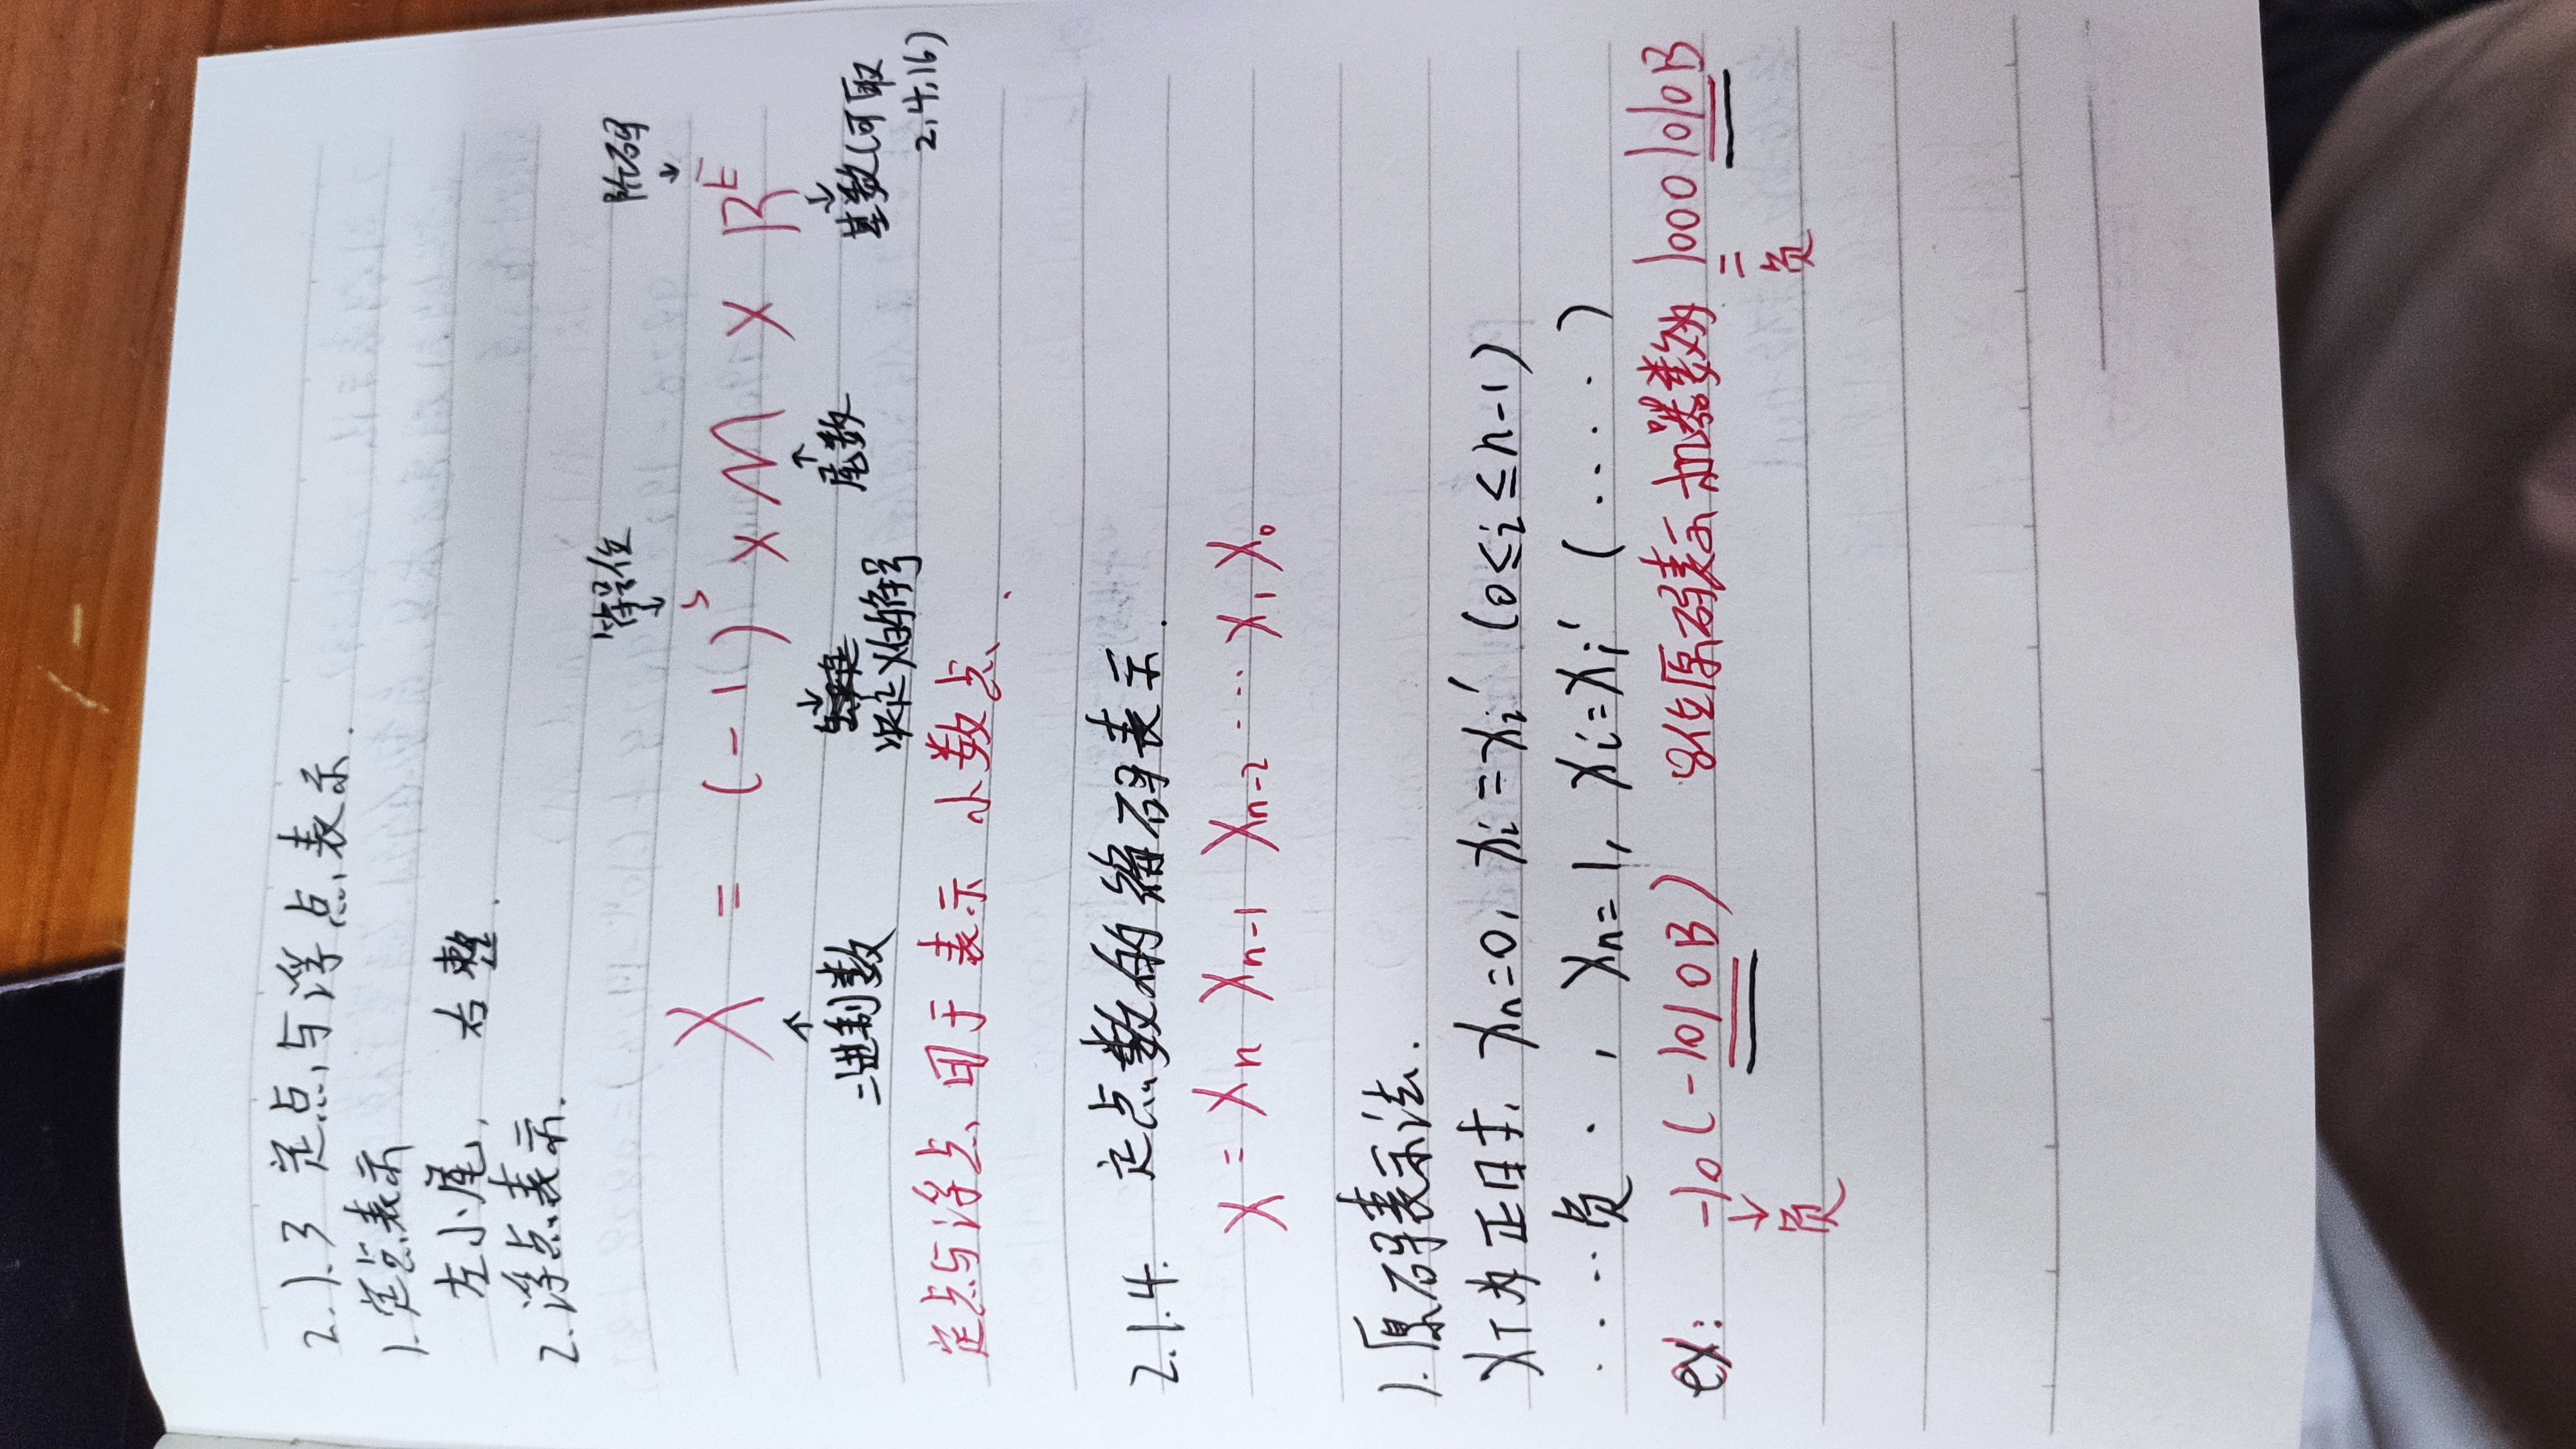 2.1.3 定点与浮点表示.
1.定点表示
左小尾, 右整.
2.浮点表示.
符号位 阶码
X = (-1)^s × M × R^E
二进制数 决定X的符号 尾数 基数(可取
2.4.16)
定点与浮点、用于表示 小数点.
2.1.4. 定点数的编码表示.
X = Xn Xn-1 Xn-2 ... X1 X0
1.原码表示法.
XT为正时, Xn=0, Xi=Xi' (0≤i≤n-1)
.....负 . , Xn=1, Xi=Xi' (....)
ex: -10 (-1010B) 8位原码表示机器数为 10001010B
负 负